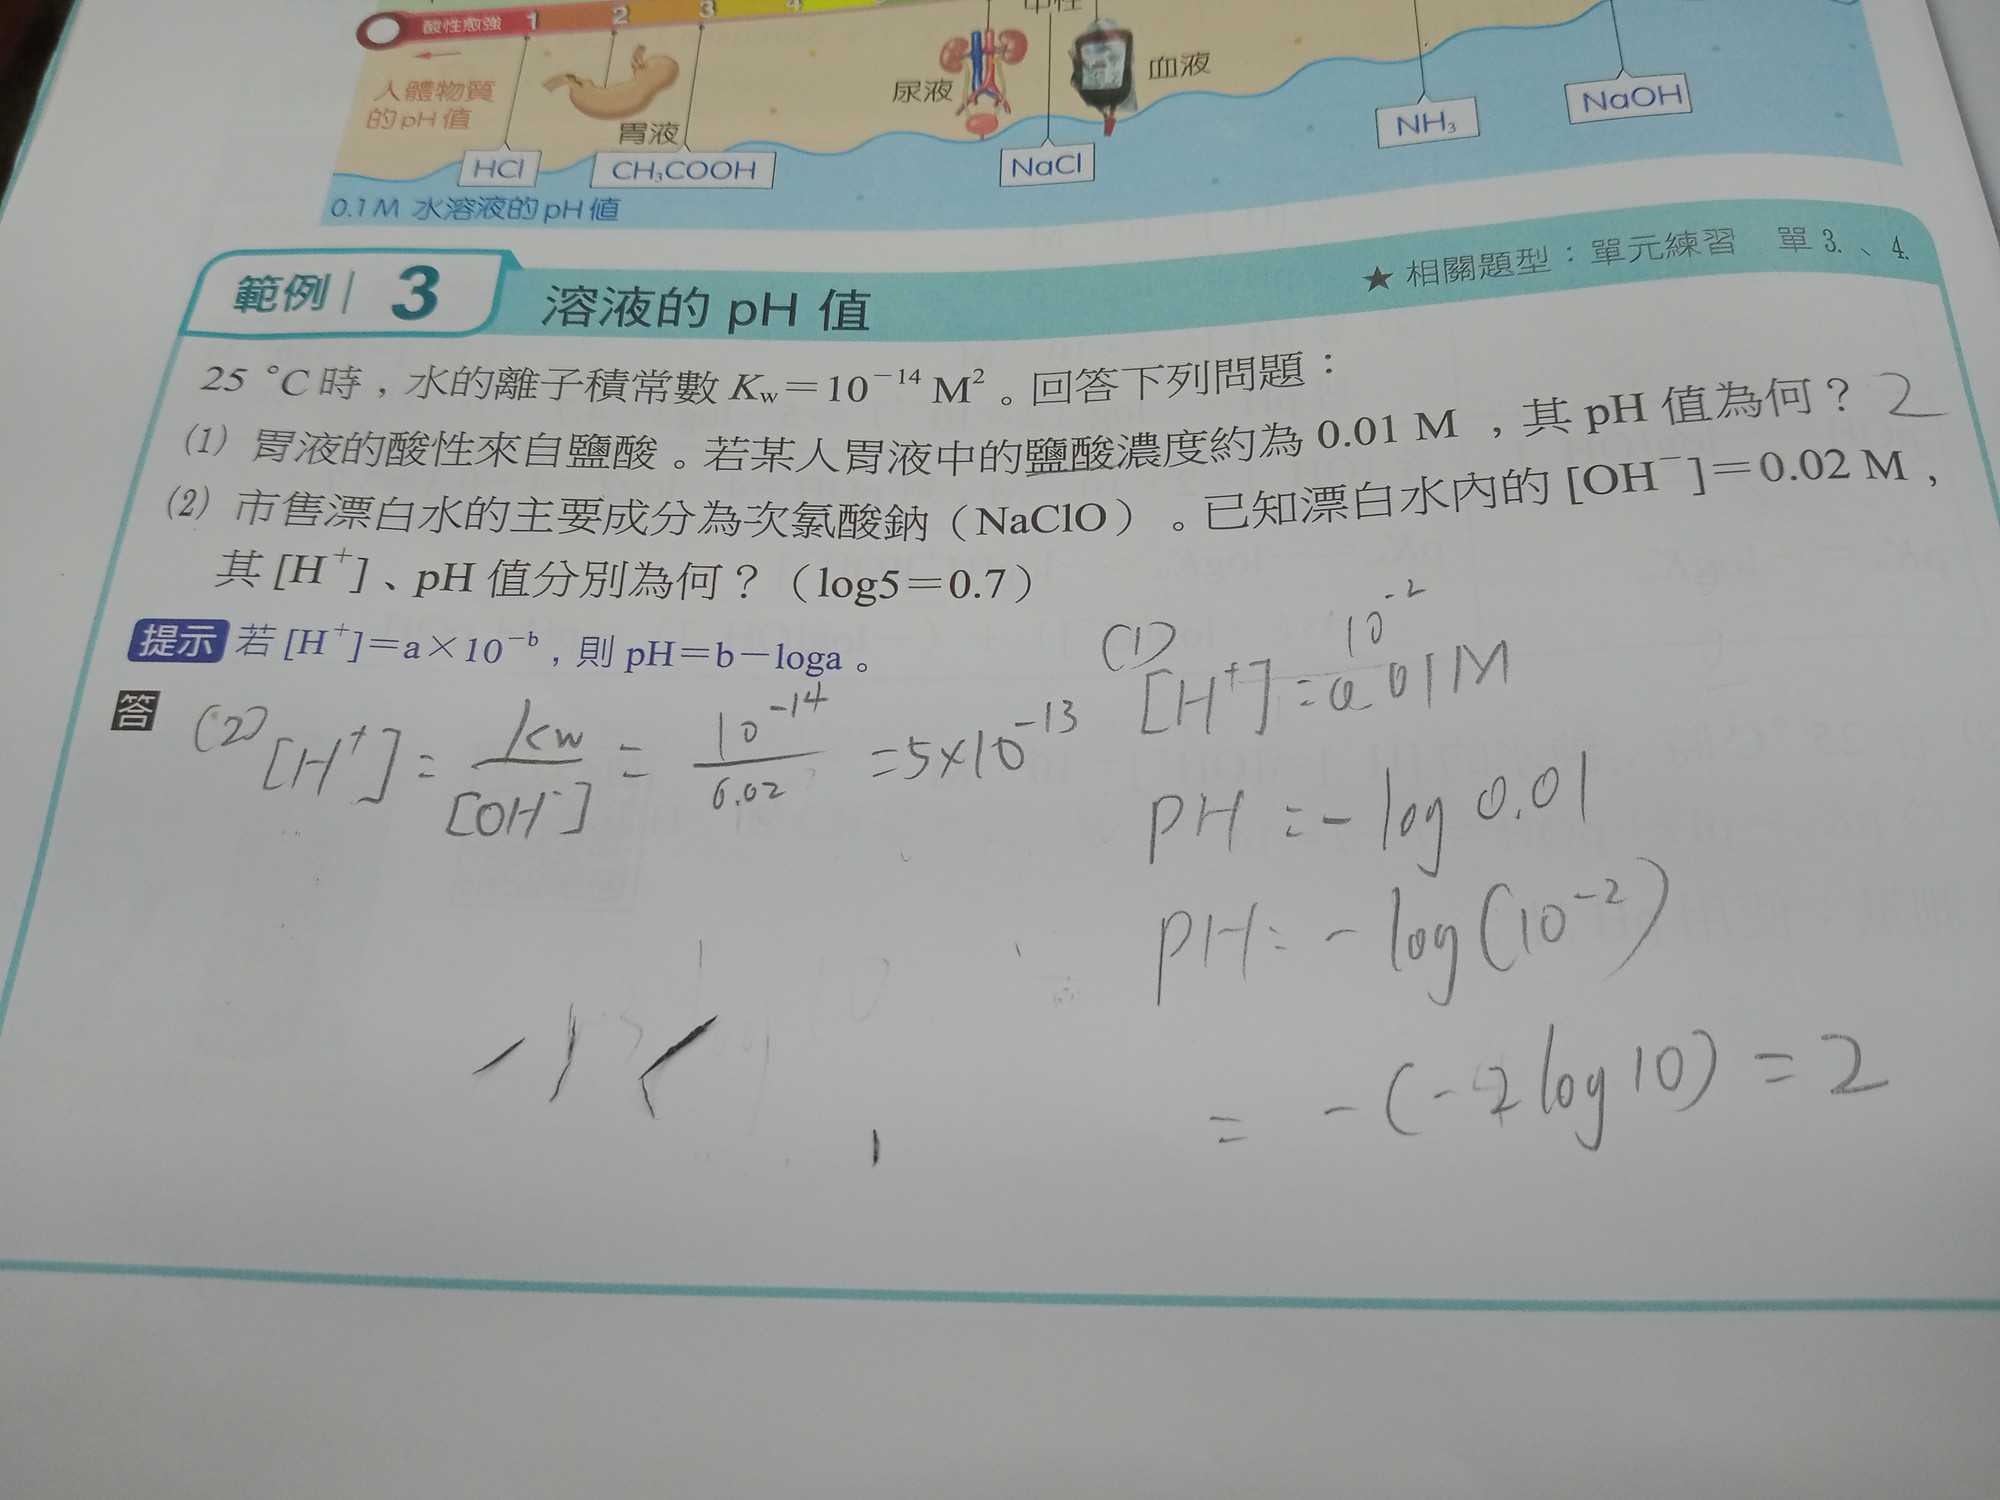 酸性愈強 1 2 3 4
中性
人體物質
的pH值
胃液
尿液
血液
HCl
CH₃COOH
NaCl
NH₃
NaOH
0.1 M 水溶液的pH值
範例 3 溶液的 pH 值
★ 相關題型：單元練習 單 3.、4.
25 °C 時，水的離子積常數 Kw＝10⁻¹⁴ M²。回答下列問題：
(1) 胃液的酸性來自鹽酸。若某人胃液中的鹽酸濃度約為 0.01 M，其 pH 值為何？ 2
(2) 市售漂白水的主要成分為次氯酸鈉（NaClO）。已知漂白水內的 [OH⁻]＝0.02 M，
其 [H⁺]、pH 值分別為何？（log5＝0.7）
提示 若 [H⁺]＝a×10⁻ᵇ，則 pH＝b－loga。
答
(2) [H⁺] = Kw / [OH⁻] = 10⁻¹⁴ / 0.02 = 5×10⁻¹³
(1) 10⁻²
[H⁺] = 0.01M
PH = - log 0.01
PH = - log(10⁻²)
= - (-2 log 10) = 2